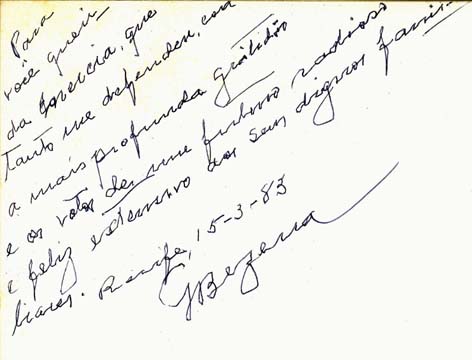 Para
você queri
da Lucecia, que
tanto me defendeu, com
a mais profunda gratidão
e os votos de um futuro radioso
e feliz extensivo aos seus dignos fami-
liares. Recife, 15-3-83
GBezerra